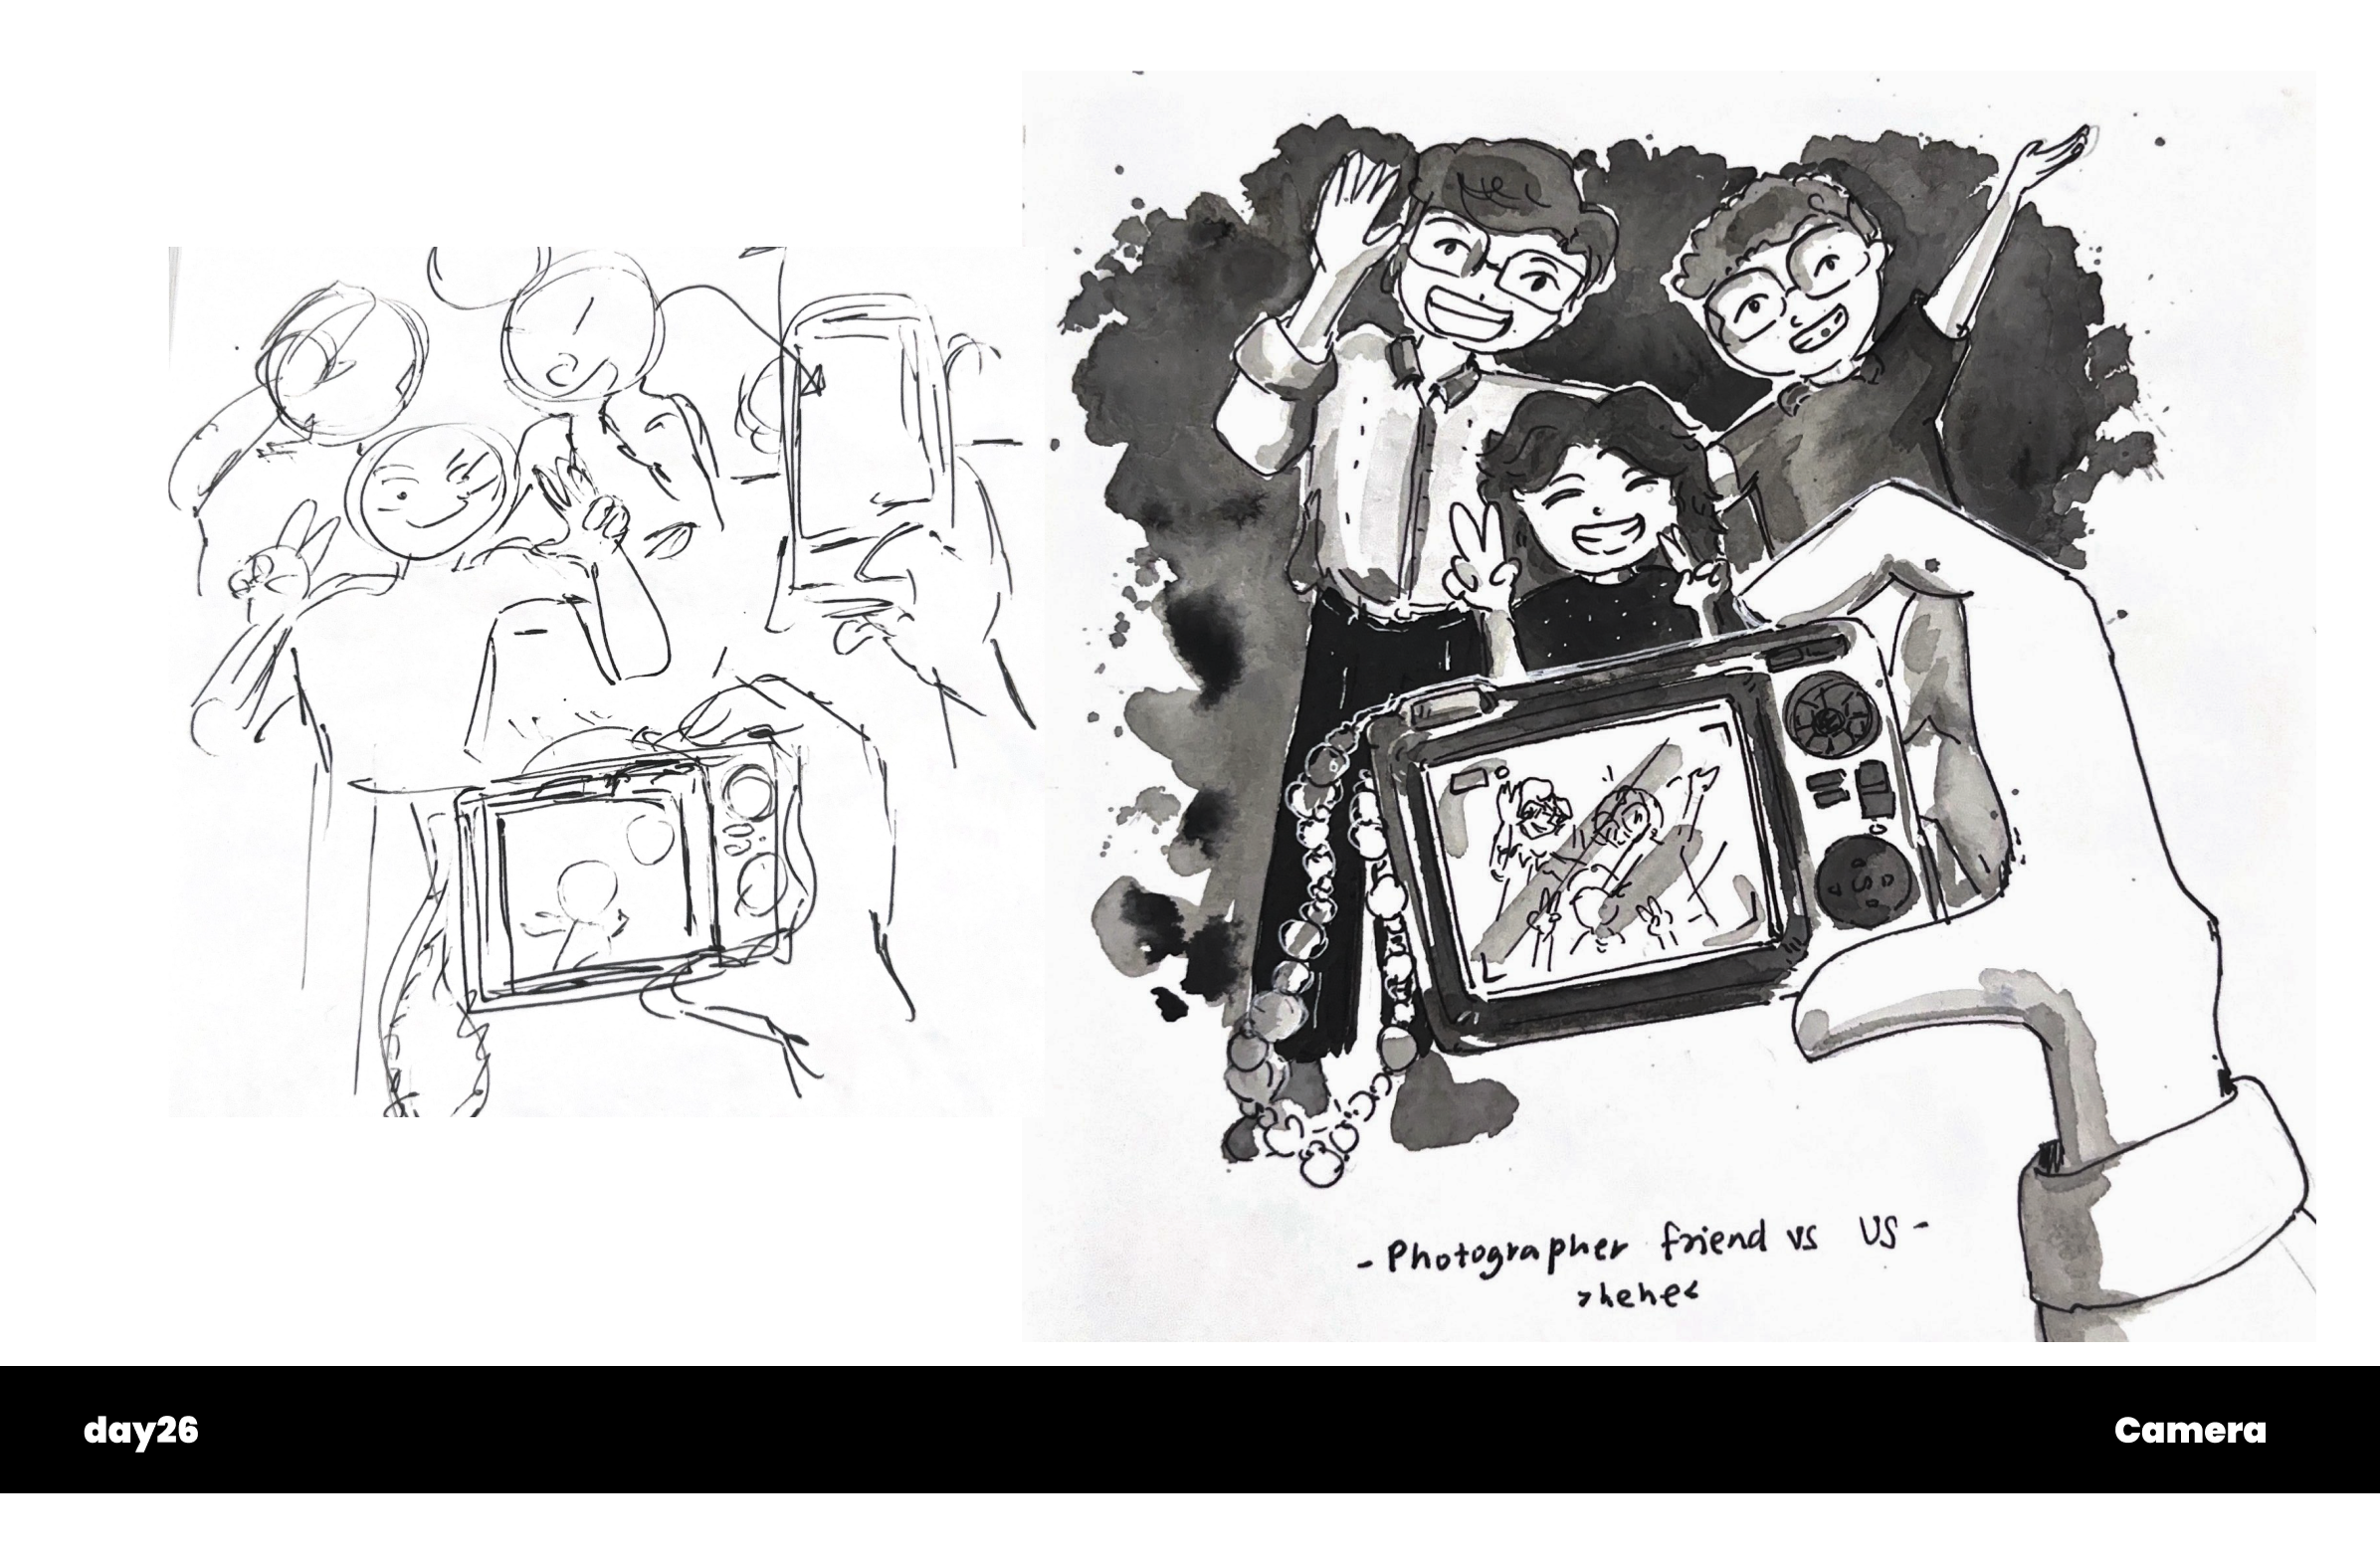 - Photographer friend vs US -
>hehe<
day26
Camera